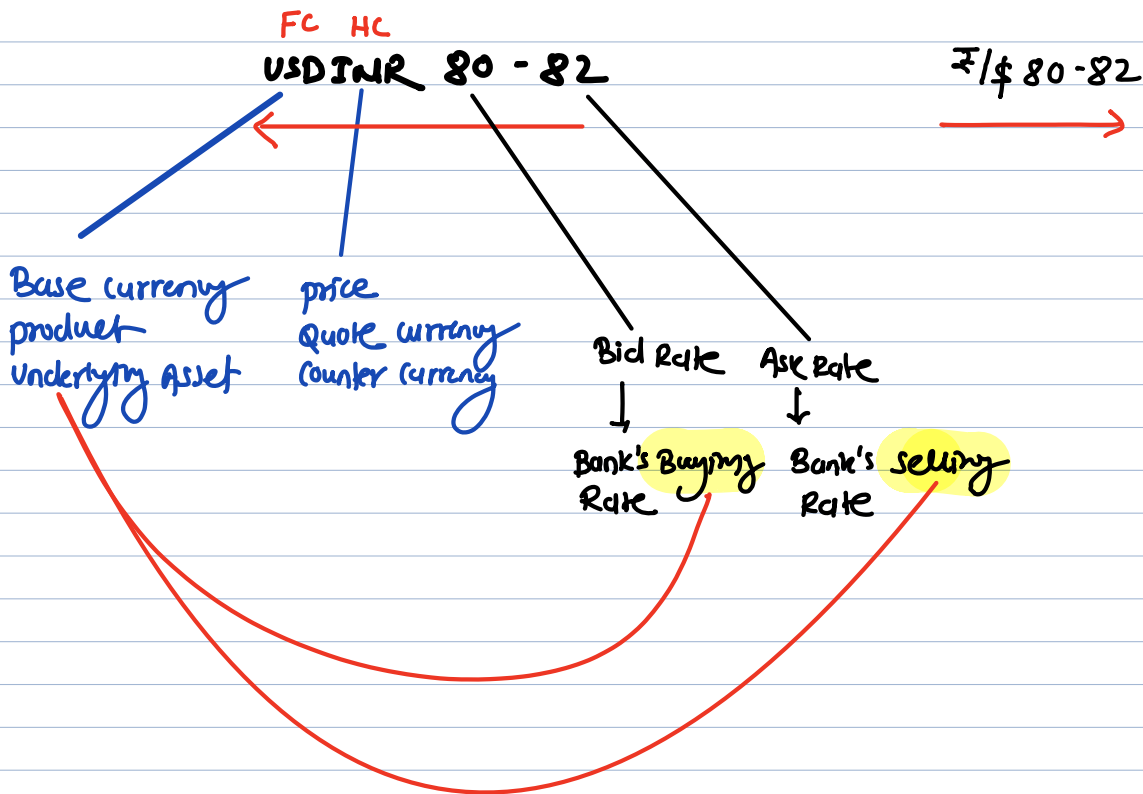 FC HC
USDINR 80 - 82
₹/$ 80-82
Base currency
product
Underlying Asset
price
Quote currency
Counter currency
Bid Rate
Ask Rate
Bank's Buying
Rate
Bank's selling
Rate